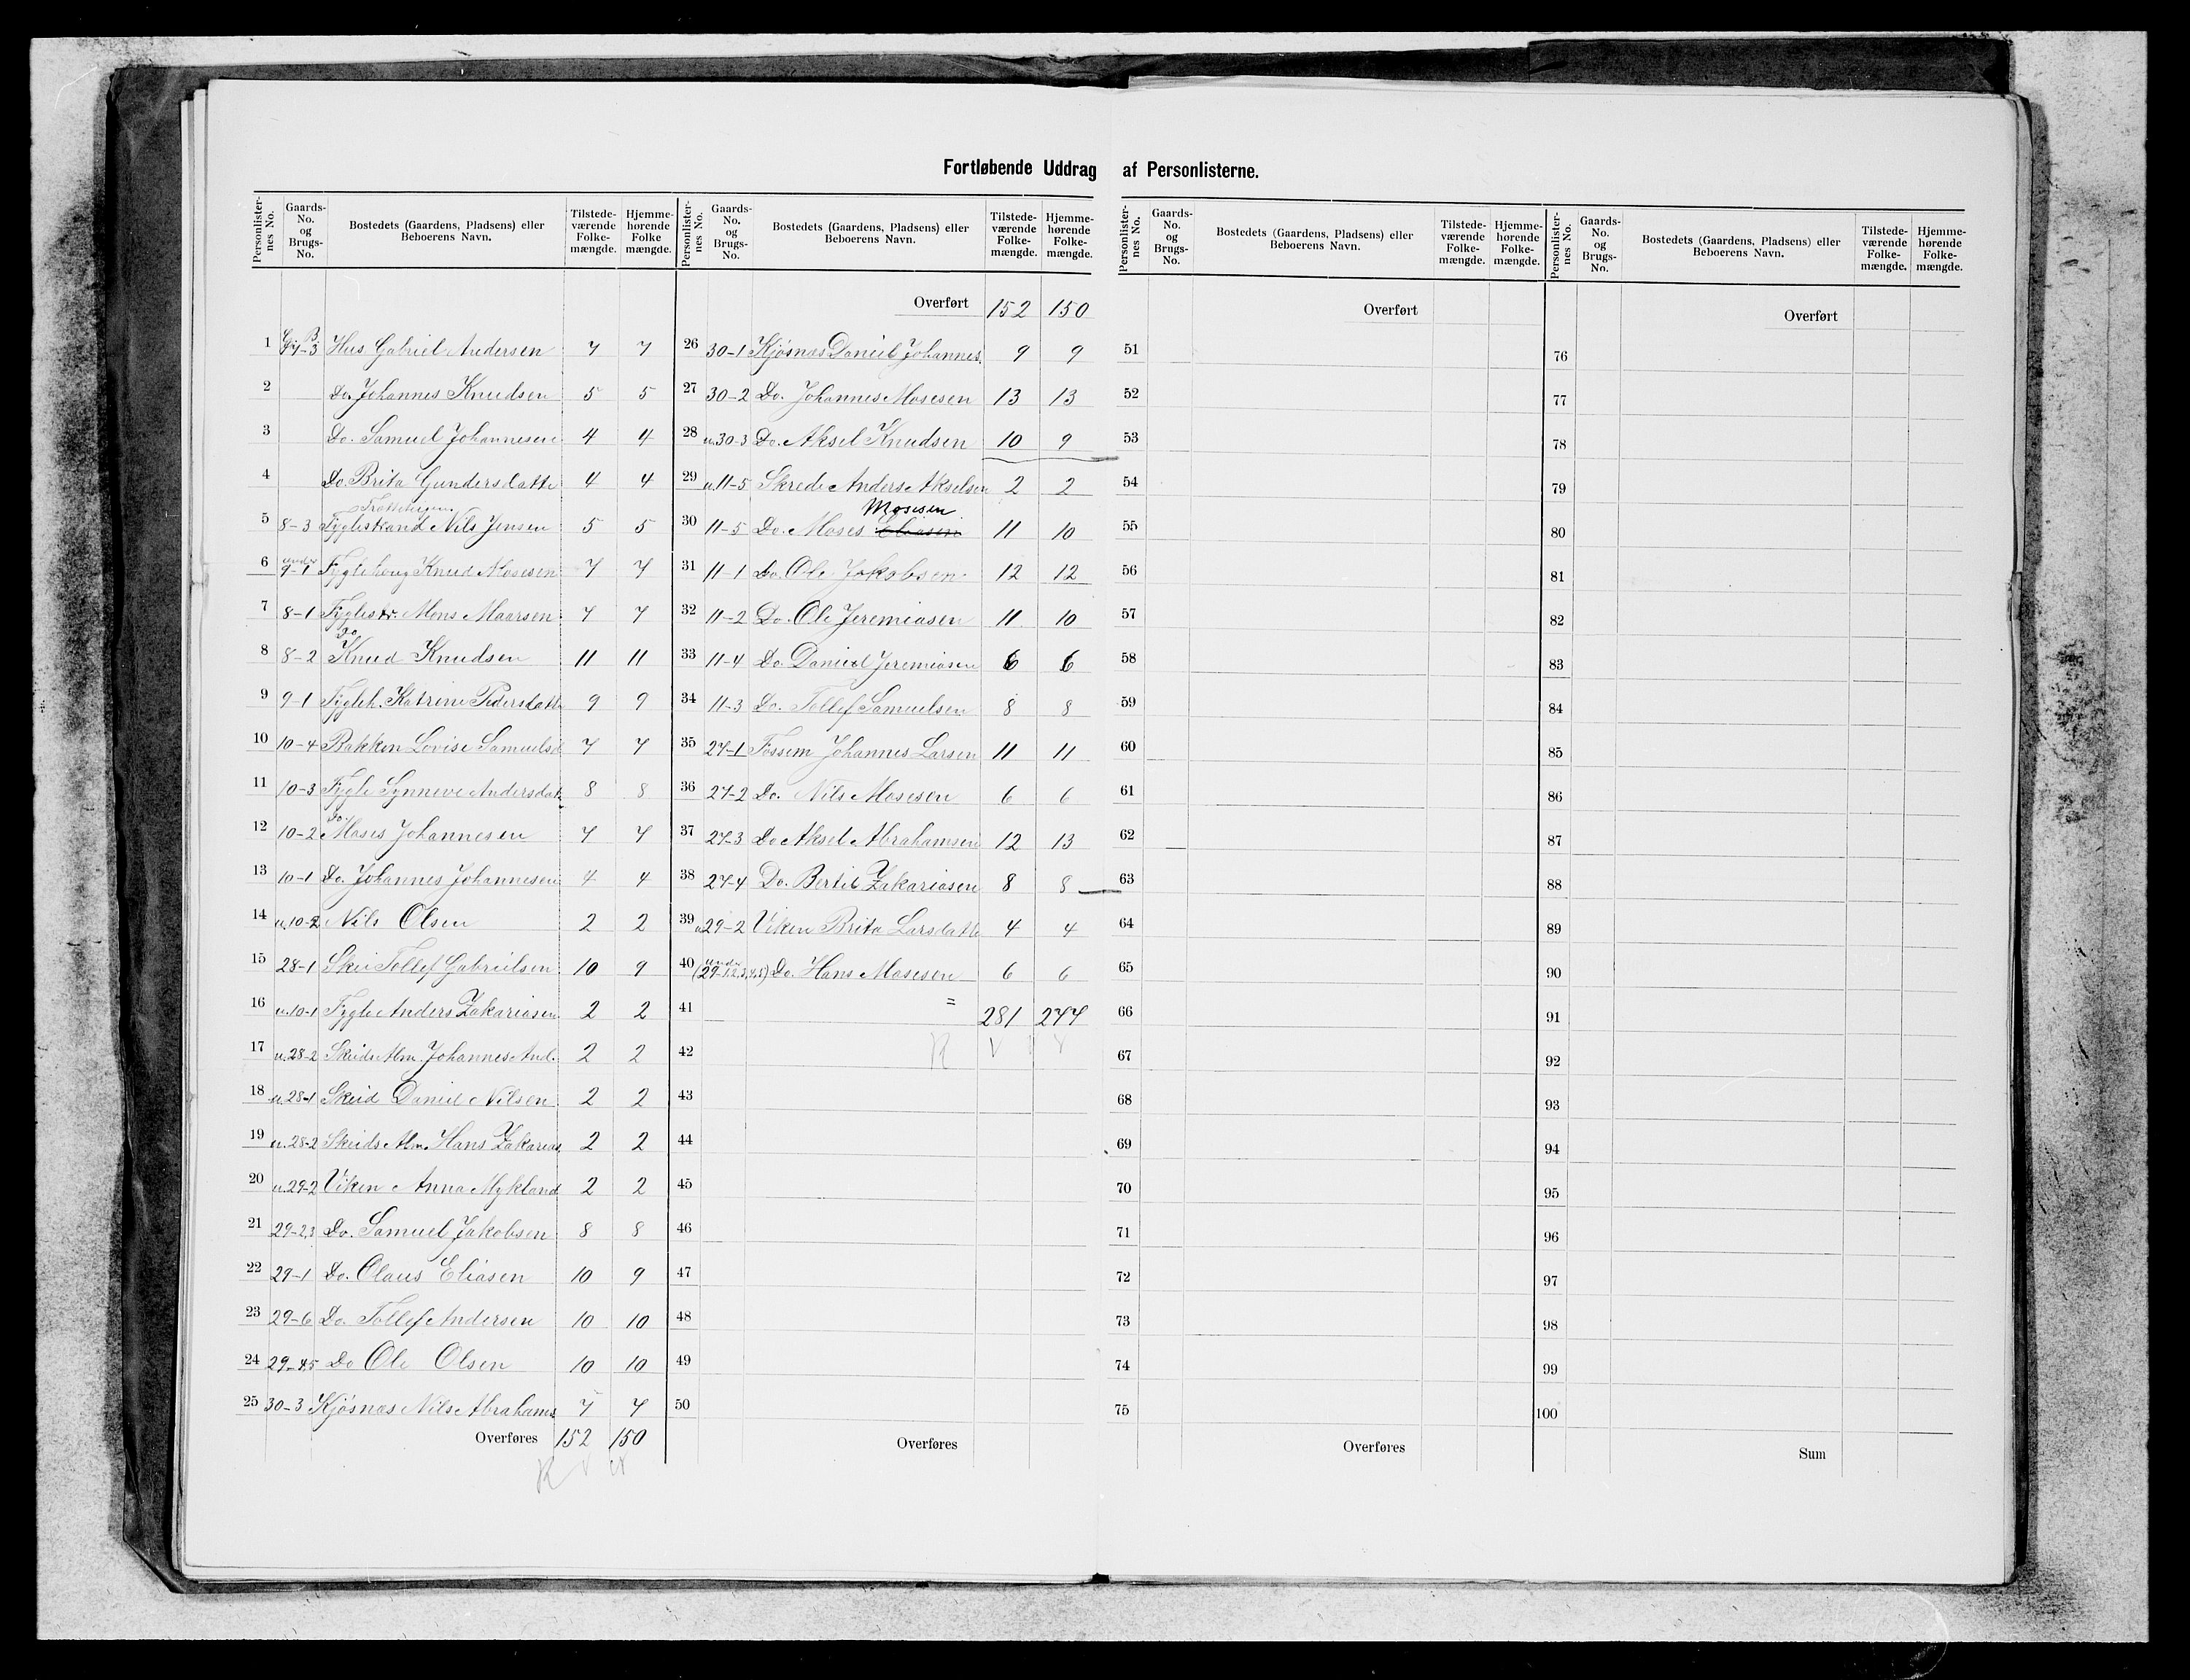 Fortløbende Uddrag af Personlisterne.
Personlisternes No. Gaards-No. og Brugs-No. Bostedets (Gaardens, Pladsens) eller Beboerens Navn. Tilstedeværende Folkemængde. Hjemmehørende Folkemængde.
1 7-3 Hus Gabriel Andersen 7 7
2 Do. Johannes Knudsen 5 5
3 Do. Samuel Johannesen 4 4
4 Do. Brita Gundersdatte 4 4
5 8-3 Fyglestrand Nils Jensen 5 5
6 under 9-1 Fyglehoug Knud Mosesen 7 7
7 8-1 Fyglestr. Mons Maarsen 7 7
8 8-2 Do Knud Knudsen 11 11
9 9-1 Fygleh. Katrine Pedersdatte 9 9
10 10-4 Bakken Lovise Samuelsd 7 7
11 10-3 Fygle Synneve Andersdat. 8 8
12 10-2 Do. Moses Johannesen 7 7
13 10-1 Do. Johannes Johannesen 4 4
14 u.10-2 Nils Olsen 2 2
15 28-1 Skei Tollef Gabrielsen 10 9
16 u.10-1 Fygle Anders Zakariasen 2 2
17 u.28-2 Skeids Alm. Johannes And. 2 2
18 u.28-1 Skeid Daniel Nilsen 2 2
19 u.28-2 Skeids Alm. Hans Zakarias. 2 2
20 u.29-2 Viken Anna Mykland 2 2
21 29-2,3 Do. Samuel Jakobsen 8 8
22 29-1 Do. Olaus Eliasen 10 9
23 29-6 Do. Tollef Andersen 10 10
24 29-4,5 Do Ole Olsen 10 10
25 30-3 Kjøsnæs Nils Abrahams. 7 7
Overføres 152 150
R v v
Personlisternes No. Gaards-No. og Brugs-No. Bostedets (Gaardens, Pladsens) eller Beboerens Navn. Tilstedeværende Folkemængde. Hjemmehørende Folkemængde.
Overført 152 150
26 30-1 Kjøsnæs Daniel Johannes. 9 9
27 30-2 Do. Johannes Mosesen 13 13
28 u.30-3 Do. Aksel Knudsen 10 9
29 u.11-5 Skrede Anders Akselsen 2 2
Mosesen
30 11-5 Do. Moses Eliasen 11 10
31 11-1 Do. Ole Jakobsen. 12 12
32 11-2 Do. Ole Jeremiasen 11 10
33 11-4 Do Daniel Jeremiasen 6 6
34 11-3 Do. Tollef Samuelsen 8 8
35 27-1 Fossem Johannes Larsen 11 11
36 27-2 Do. Nils Mosesen 6 6
37 27-3 Do Aksel Abrahamsen 12 13
38 27-4 Do. Bertil Zakariasen 8 8
39 u29-2 Viken Brita Larsdatte 4 4
40 under (29-1,2,3,4,5) Do. Hans Mosesen 6 6
41 = 281 277
42 R v v
43
44
45
46
47
48
49
50
Overføres
Personlisternes No. Gaards-No. og Brugs-No. Bostedets (Gaardens, Pladsens) eller Beboerens Navn. Tilstedeværende Folkemængde. Hjemmehørende Folkemængde.
Overført
51
52
53
54
55
56
57
58
59
60
61
62
63
64
65
66
67
68
69
70
71
72
73
74
75
Overføres
Personlisternes No. Gaards-No. og Brugs-No. Bostedets (Gaardens, Pladsens) eller Beboerens Navn. Tilstedeværende Folkemængde. Hjemmehørende Folkemængde.
Overført
76
77
78
79
80
81
82
83
84
85
86
87
88
89
90
91
92
93
94
95
96
97
98
99
100
Sum